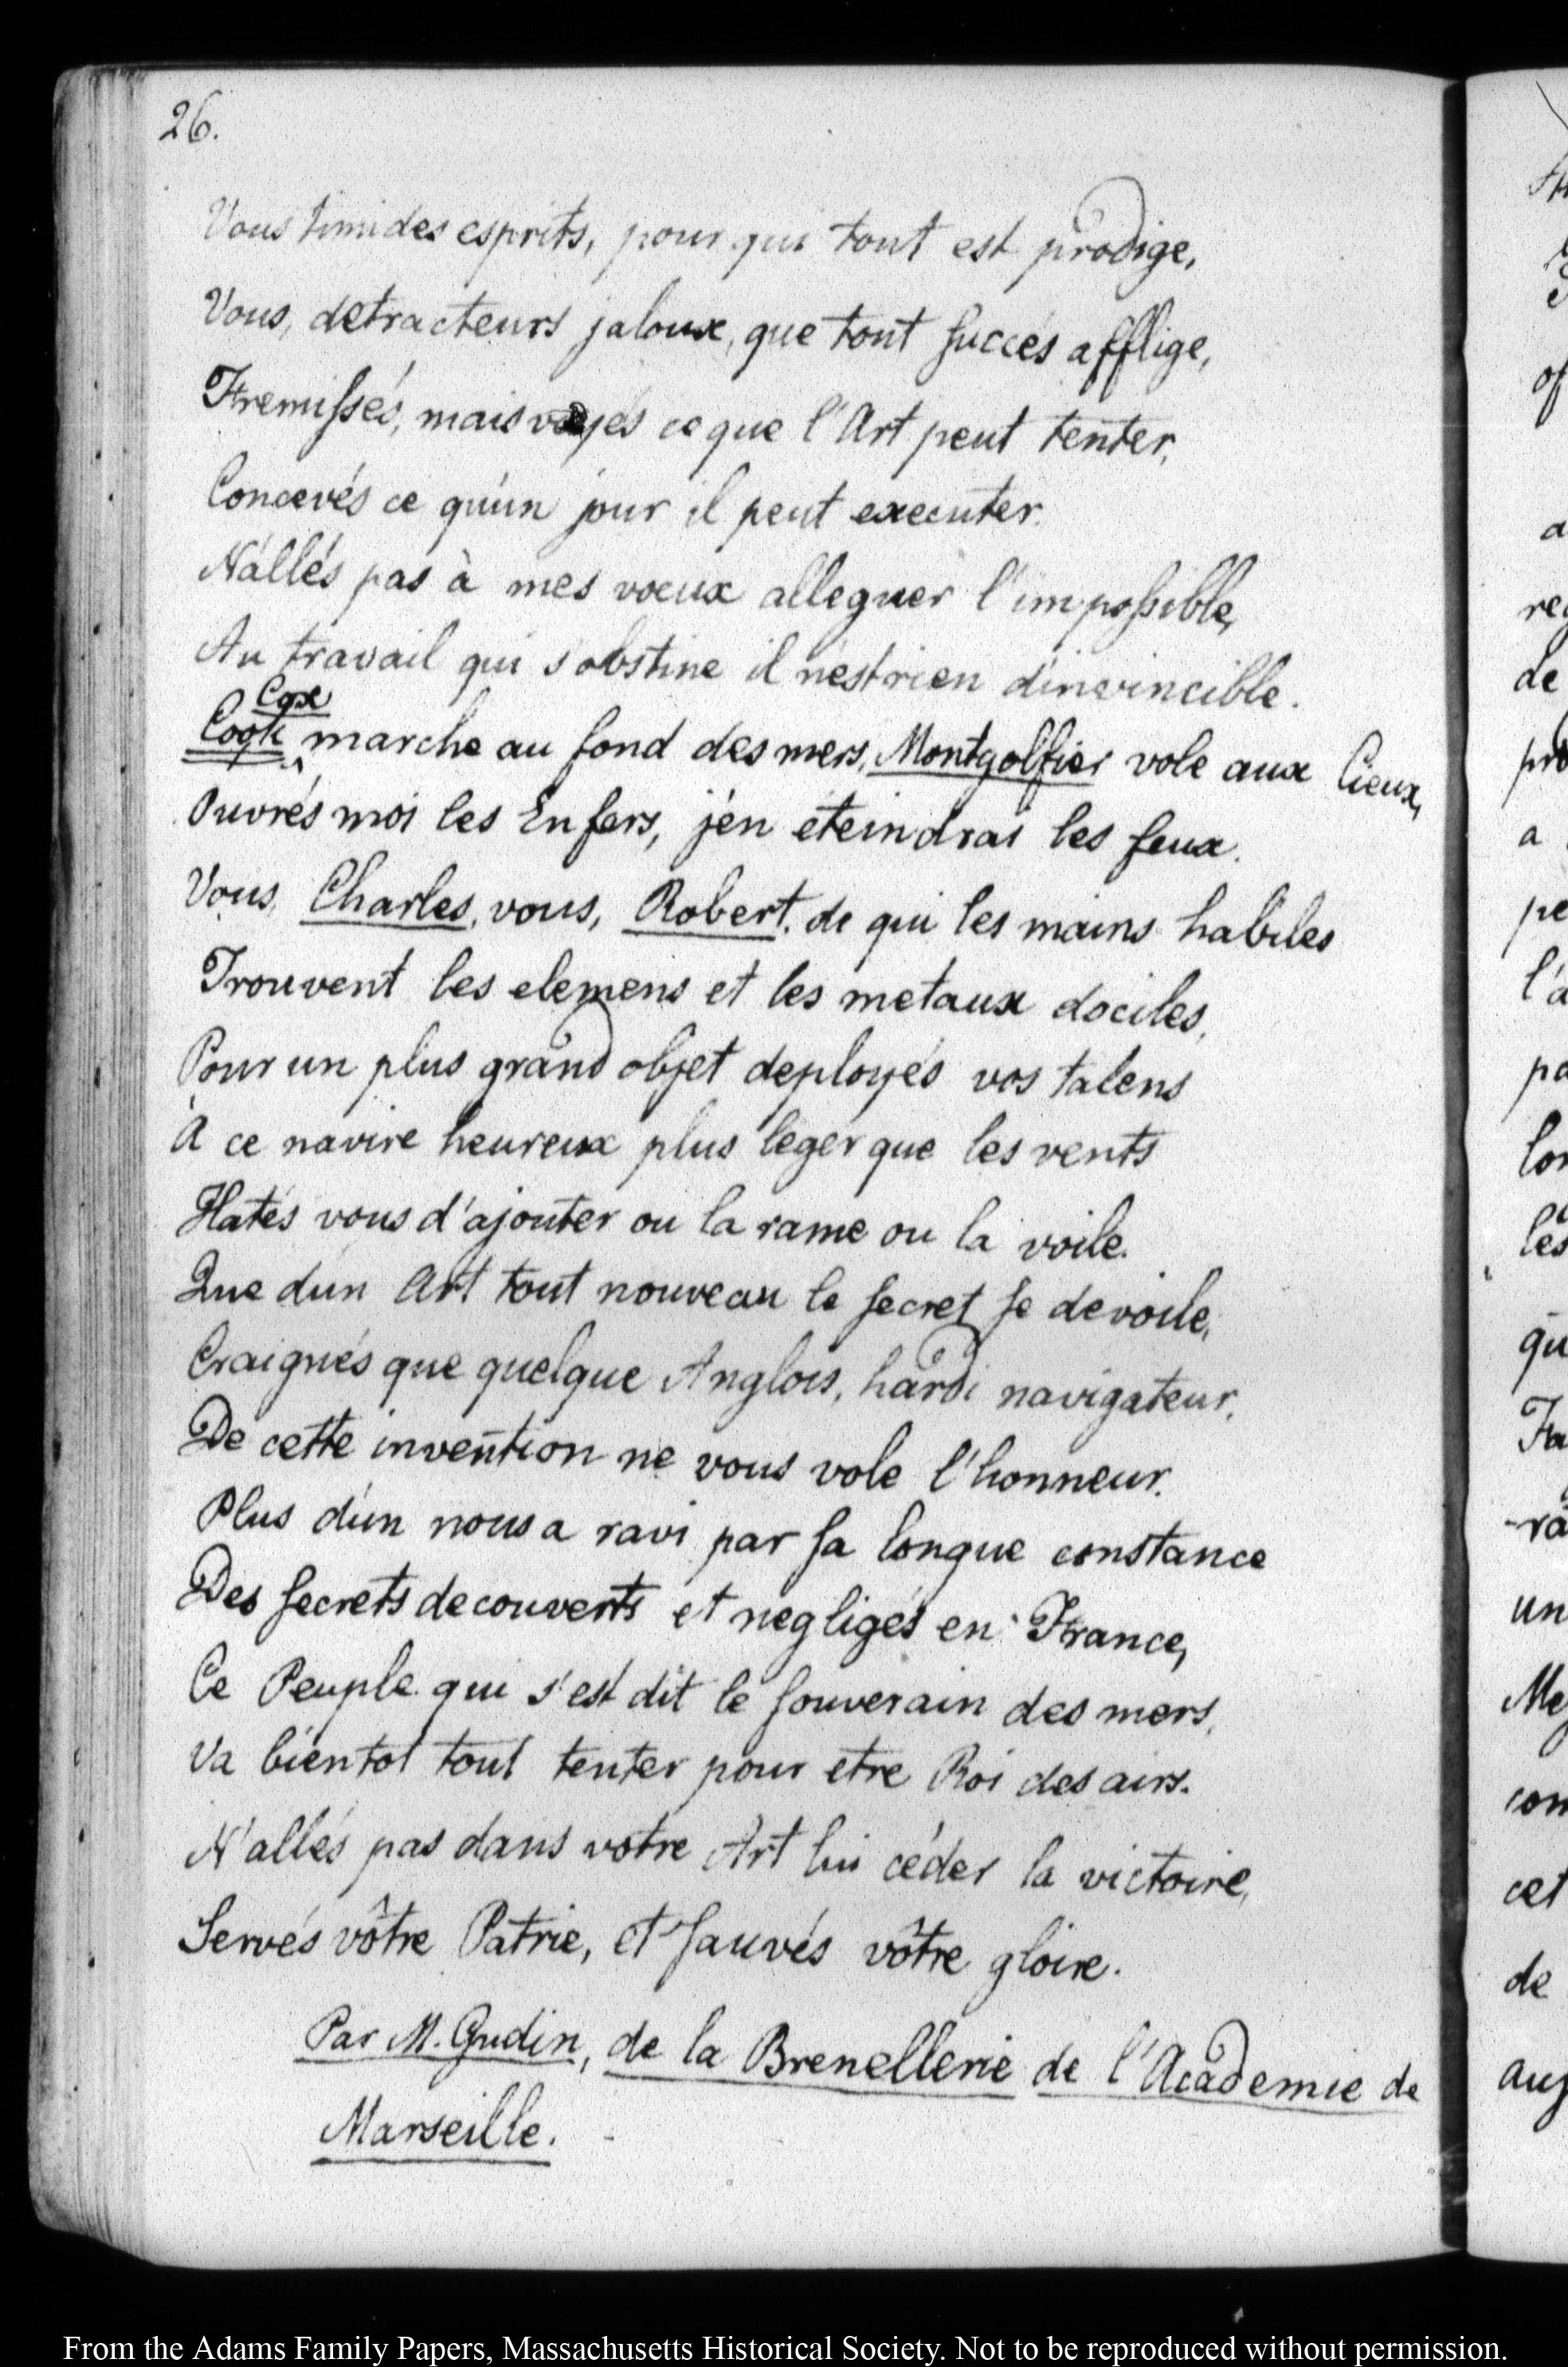 26.
Vous timides esprits, pour qui tout est prodige,
Vous, detracteurs jaloux, que tout succés afflige,
Fremissés, mais voyés ce que l'Art peut tenter,
Concevés ce qu'un jour il peut executer.
N'allés pas à mes voeux alleguer l'impossible,
Au travail qui s'obstine il n'est rien d'invincible.
Cox
Cook marche au fond des mers, Montgolfier vole aux Cieux,
Ouvrés moi les Enfers, j'en éteindrai les feux.
Vous, Charles, vous, Robert, de qui les mains habiles
Trouvent les elemens et les metaux dociles,
Pour un plus grand objet deployés vos talens
À ce navire heureux plus leger que les vents
Hatés vous d'ajouter ou la rame ou la voile.
Que d'un Art tout nouveau le secret se devoile,
Craignés que quelque Anglois, hardi navigateur,
De cette invention ne vous vole l'honneur.
Plus d'un nous a ravi par sa longue constance
Des secrets decouverts et negligés en France,
Ce Peuple qui s'est dit le souverain des mers,
Va bientot tout tenter pour etre Roi des airs.
N'allés pas dans votre Art lui céder la victoire,
Servés vôtre Patrie, et sauvés vôtre gloire.
Par M. Gudin, de la Brenellerie de l'Academie de
Marseille.
From the Adams Family Papers, Massachusetts Historical Society. Not to be reproduced without permission.